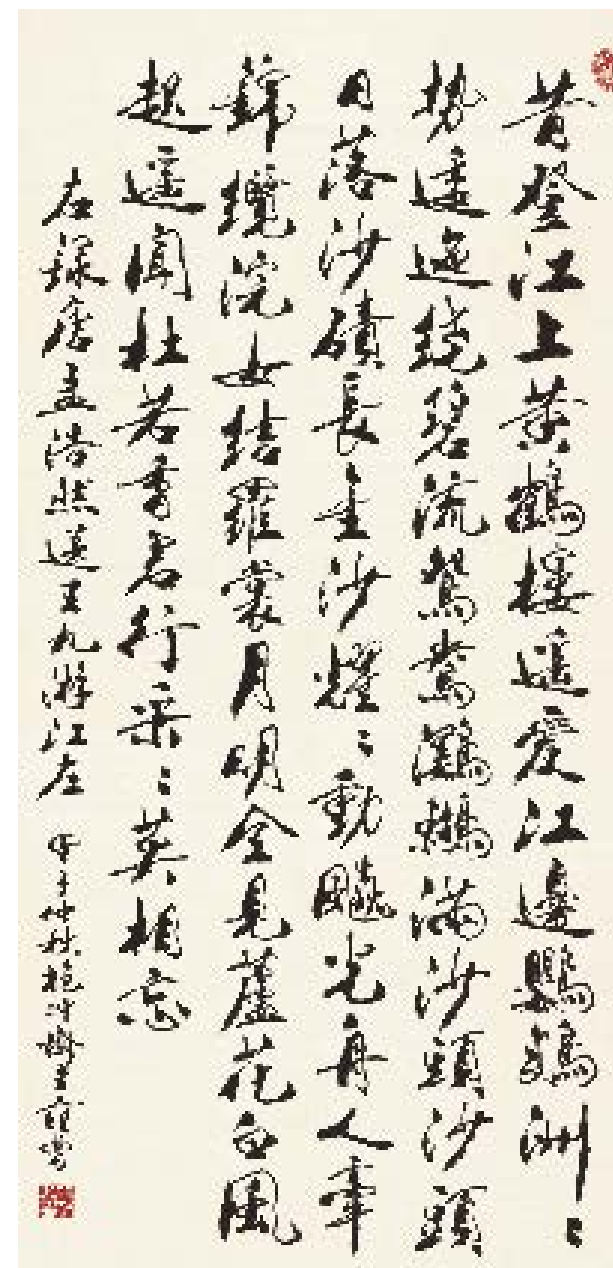 昔登江上黄鶴樓遥愛江邊鸚鵡洲〻
勢逶迤繞碧流鴛鴦鸂鶒滿沙頭沙頭
日落沙磧長金沙耀〻動飈光舟人牽
錦纜浣女結羅裳月明全見蘆花白風
起遥聞杜若香君行采〻莫相忘
右録唐孟浩然送王九游江左 子仲秋